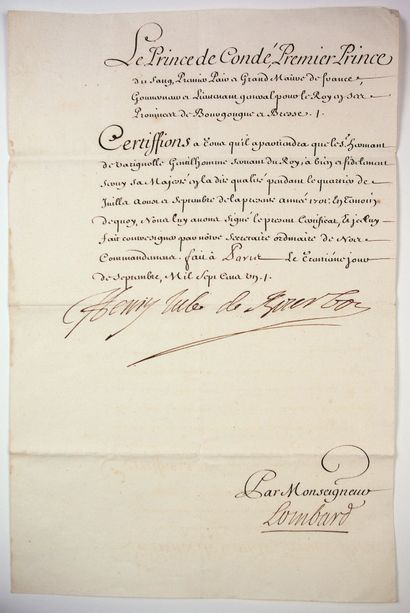 Le Prince de Condé, Premier Prince
du Sang, Premier Pair et Grand Maître de france,
Gouverneur et Lieutenant general pour le Roy en ses
Provinces de Bourgongne et Bresse.
Certiffions a Tous qu'il apartiendra que le S.r
de Varignolle Gentilhomme servant du Roy, a bien et fidelement
servy sa Majesté en la dite qualité pendant le quartier de
Juillet Aoust et Septembre de la presente année 1701. En temoin
de quoy, Nous luy avons signé le present Certificat, et iceluy
fait contresigner par nôtre Secretaire ordinaire de Nos
Commandemens. fait à Paris Le Trentiéme jour
de Septembre, Mil Sept Cens un.
Henry Jules de Bourbon
Par Monseigneur
Lombard